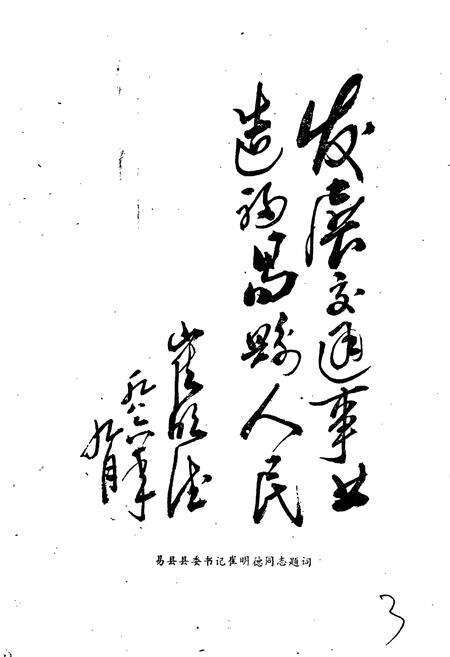 发展交通事业
造福易县人民
崔明德
一九八六年
九月
易县县委书记崔明德同志题词
3